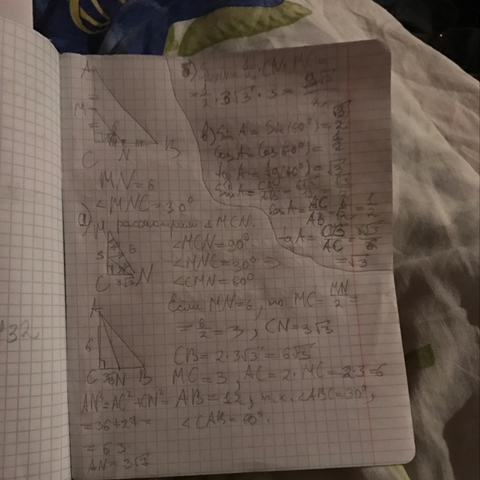 A
M
C N B
MN = 6
∠MNC = 30°
а) рассмотрим △MCN.
∠MCN = 90°
∠MNC = 30° ⇒
∠CMN = 60°
M
C 3√3 N
Если MN = 6, то MC = MN/2 =
= 6/2 = 3, CN = 3√3
CB = 2·3√3 = 6√3
MC = 3, AC = 2·MC = 2·3 = 6
AB = 12, т.к. ∠ABC = 30°,
∠CAB = 60°.
A
6
C N B
AN² = AC² + CN² =
= 36 + 27 =
= 63
AN = 3√7
б) = 1/2 · CN · MC =
= 1/2 · 3√3 · 3 = 9√3/2
в) sin A = sin(60°) = √3/2
cos A = cos(60°) = 1/2
tg A = tg(60°) = √3
sin A = CB/AB =
cos A = AC/AB = 6/12 = 1/2
tg A = CB/AC = 6√3/6
= √3
32